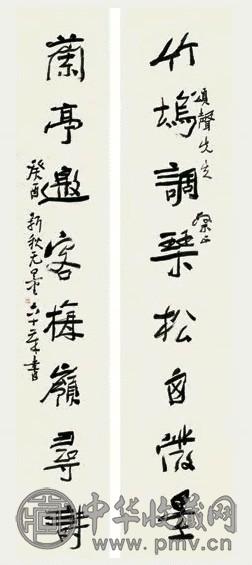 竹塢調琴松窗潑墨
頌聲先生 粲正
蘭亭邀客梅嶺尋詩
癸酉新秋元六十書
中华收藏网
www.pmv.cn